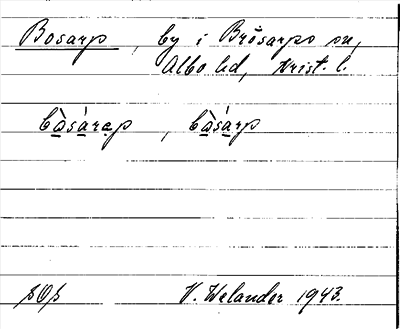 Bosarp, by i Brösarps sn,
Albo hd, Krist. l.
bàsárap, bàsárp
V. Welander 1943.